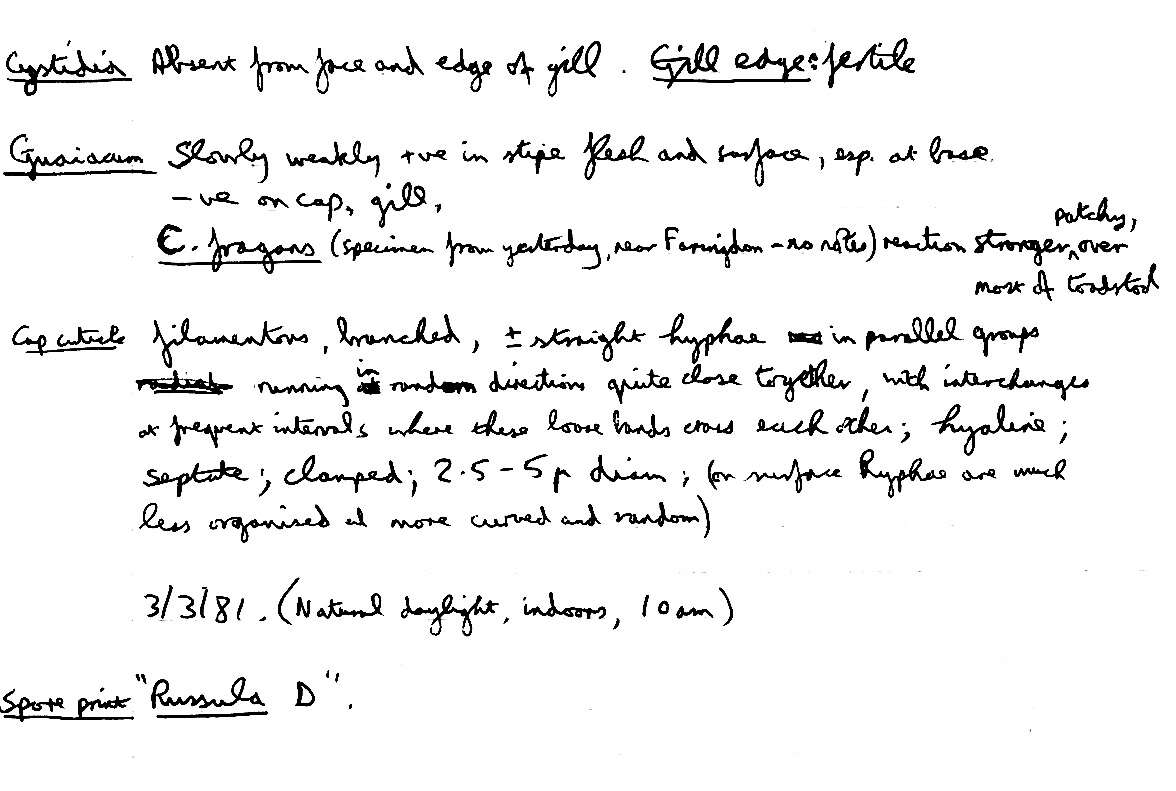 Cystidia Absent from face and edge of gill. Gill edge: fertile
Guaiacum Slowly weakly +ve in stipe flesh and surface, esp. at base.
-ve on cap, gill,
C. fragans (specimen from yesterday, near Faringdon - no notes) reaction stronger, patchy, over
most of toadstool
Cap cuticle filamentous, branched, ± straight hyphae in parallel groups
running in random directions quite close together, with interchanges
at frequent intervals where these loose bands cross each other; hyaline;
septate; clamped; 2.5-5µ diam; (on surface hyphae are much
less organised and more curved and random)
3/3/81. (Natural daylight, indoors, 10am)
Spore print "Russula D".